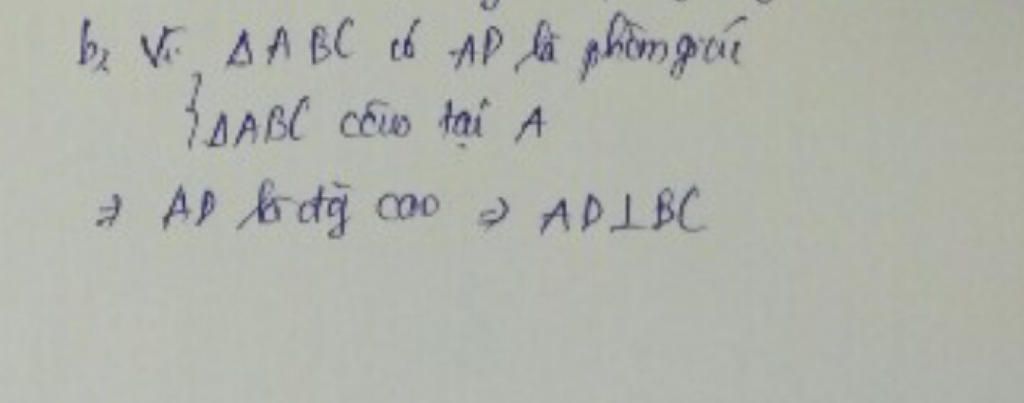 b, Vì ΔABC có AD là phân giác
{ ΔABC cân tại A
⇒ AD là đg cao ⇒ AD⊥BC